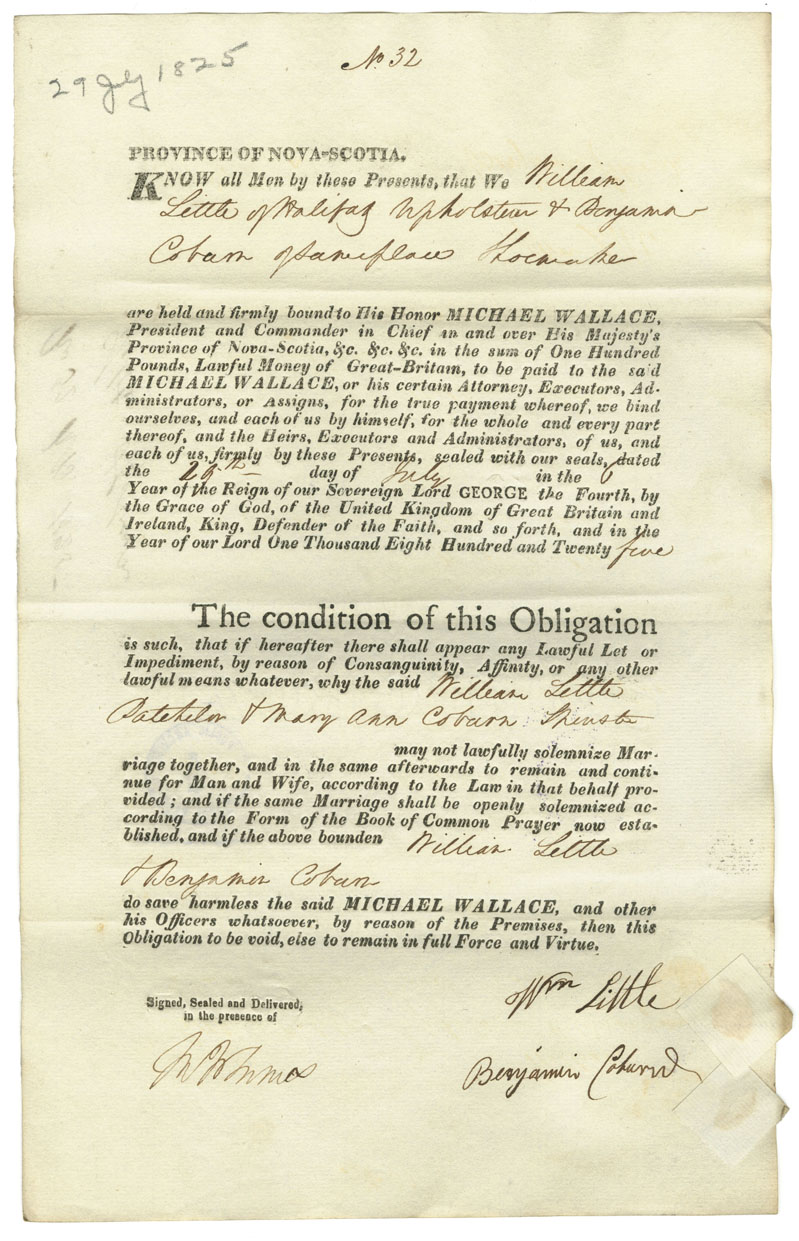 No 32
29 July 1825
PROVINCE OF NOVA-SCOTIA.
KNOW all Men by these Presents, that We William
Little of Halifax Upholsterer & Benjamin
Coburn of same place Shoemaker
are held and firmly bound to His Honor MICHAEL WALLACE,
President and Commander in Chief in and over His Majesty's
Province of Nova-Scotia, &c. &c. &c. in the sum of One Hundred
Pounds, Lawful Money of Great-Britain, to be paid to the said
MICHAEL WALLACE, or his certain Attorney, Executors, Ad-
ministrators, or Assigns, for the true payment whereof, we bind
ourselves, and each of us by himself, for the whole and every part
thereof, and the Heirs, Executors and Administrators, of us, and
each of us, firmly by these Presents, sealed with our seals, dated
the 29th day of July in the 6
Year of the Reign of our Sovereign Lord GEORGE the Fourth, by
the Grace of God, of the United Kingdom of Great Britain and
Ireland, King, Defender of the Faith, and so forth, and in the
Year of our Lord One Thousand Eight Hundred and Twenty five
The condition of this Obligation
is such, that if hereafter there shall appear any Lawful Let or
Impediment, by reason of Consanguinity, Affinity, or any other
lawful means whatever, why the said William Little
Batchelor & Mary Ann Coburn Spinster
may not lawfully solemnize Mar-
riage together, and in the same afterwards to remain and conti-
nue for Man and Wife, according to the Law in that behalf pro-
vided; and if the same Marriage shall be openly solemnized ac-
cording to the Form of the Book of Common Prayer now esta-
blished, and if the above bounden William Little
& Benjamin Coburn
do save harmless the said MICHAEL WALLACE, and other
his Officers whatsoever, by reason of the Premises, then this
Obligation to be void, else to remain in full Force and Virtue.
Signed, Sealed and Delivered,
in the presence of
Wm Little
Benjamin Coburn